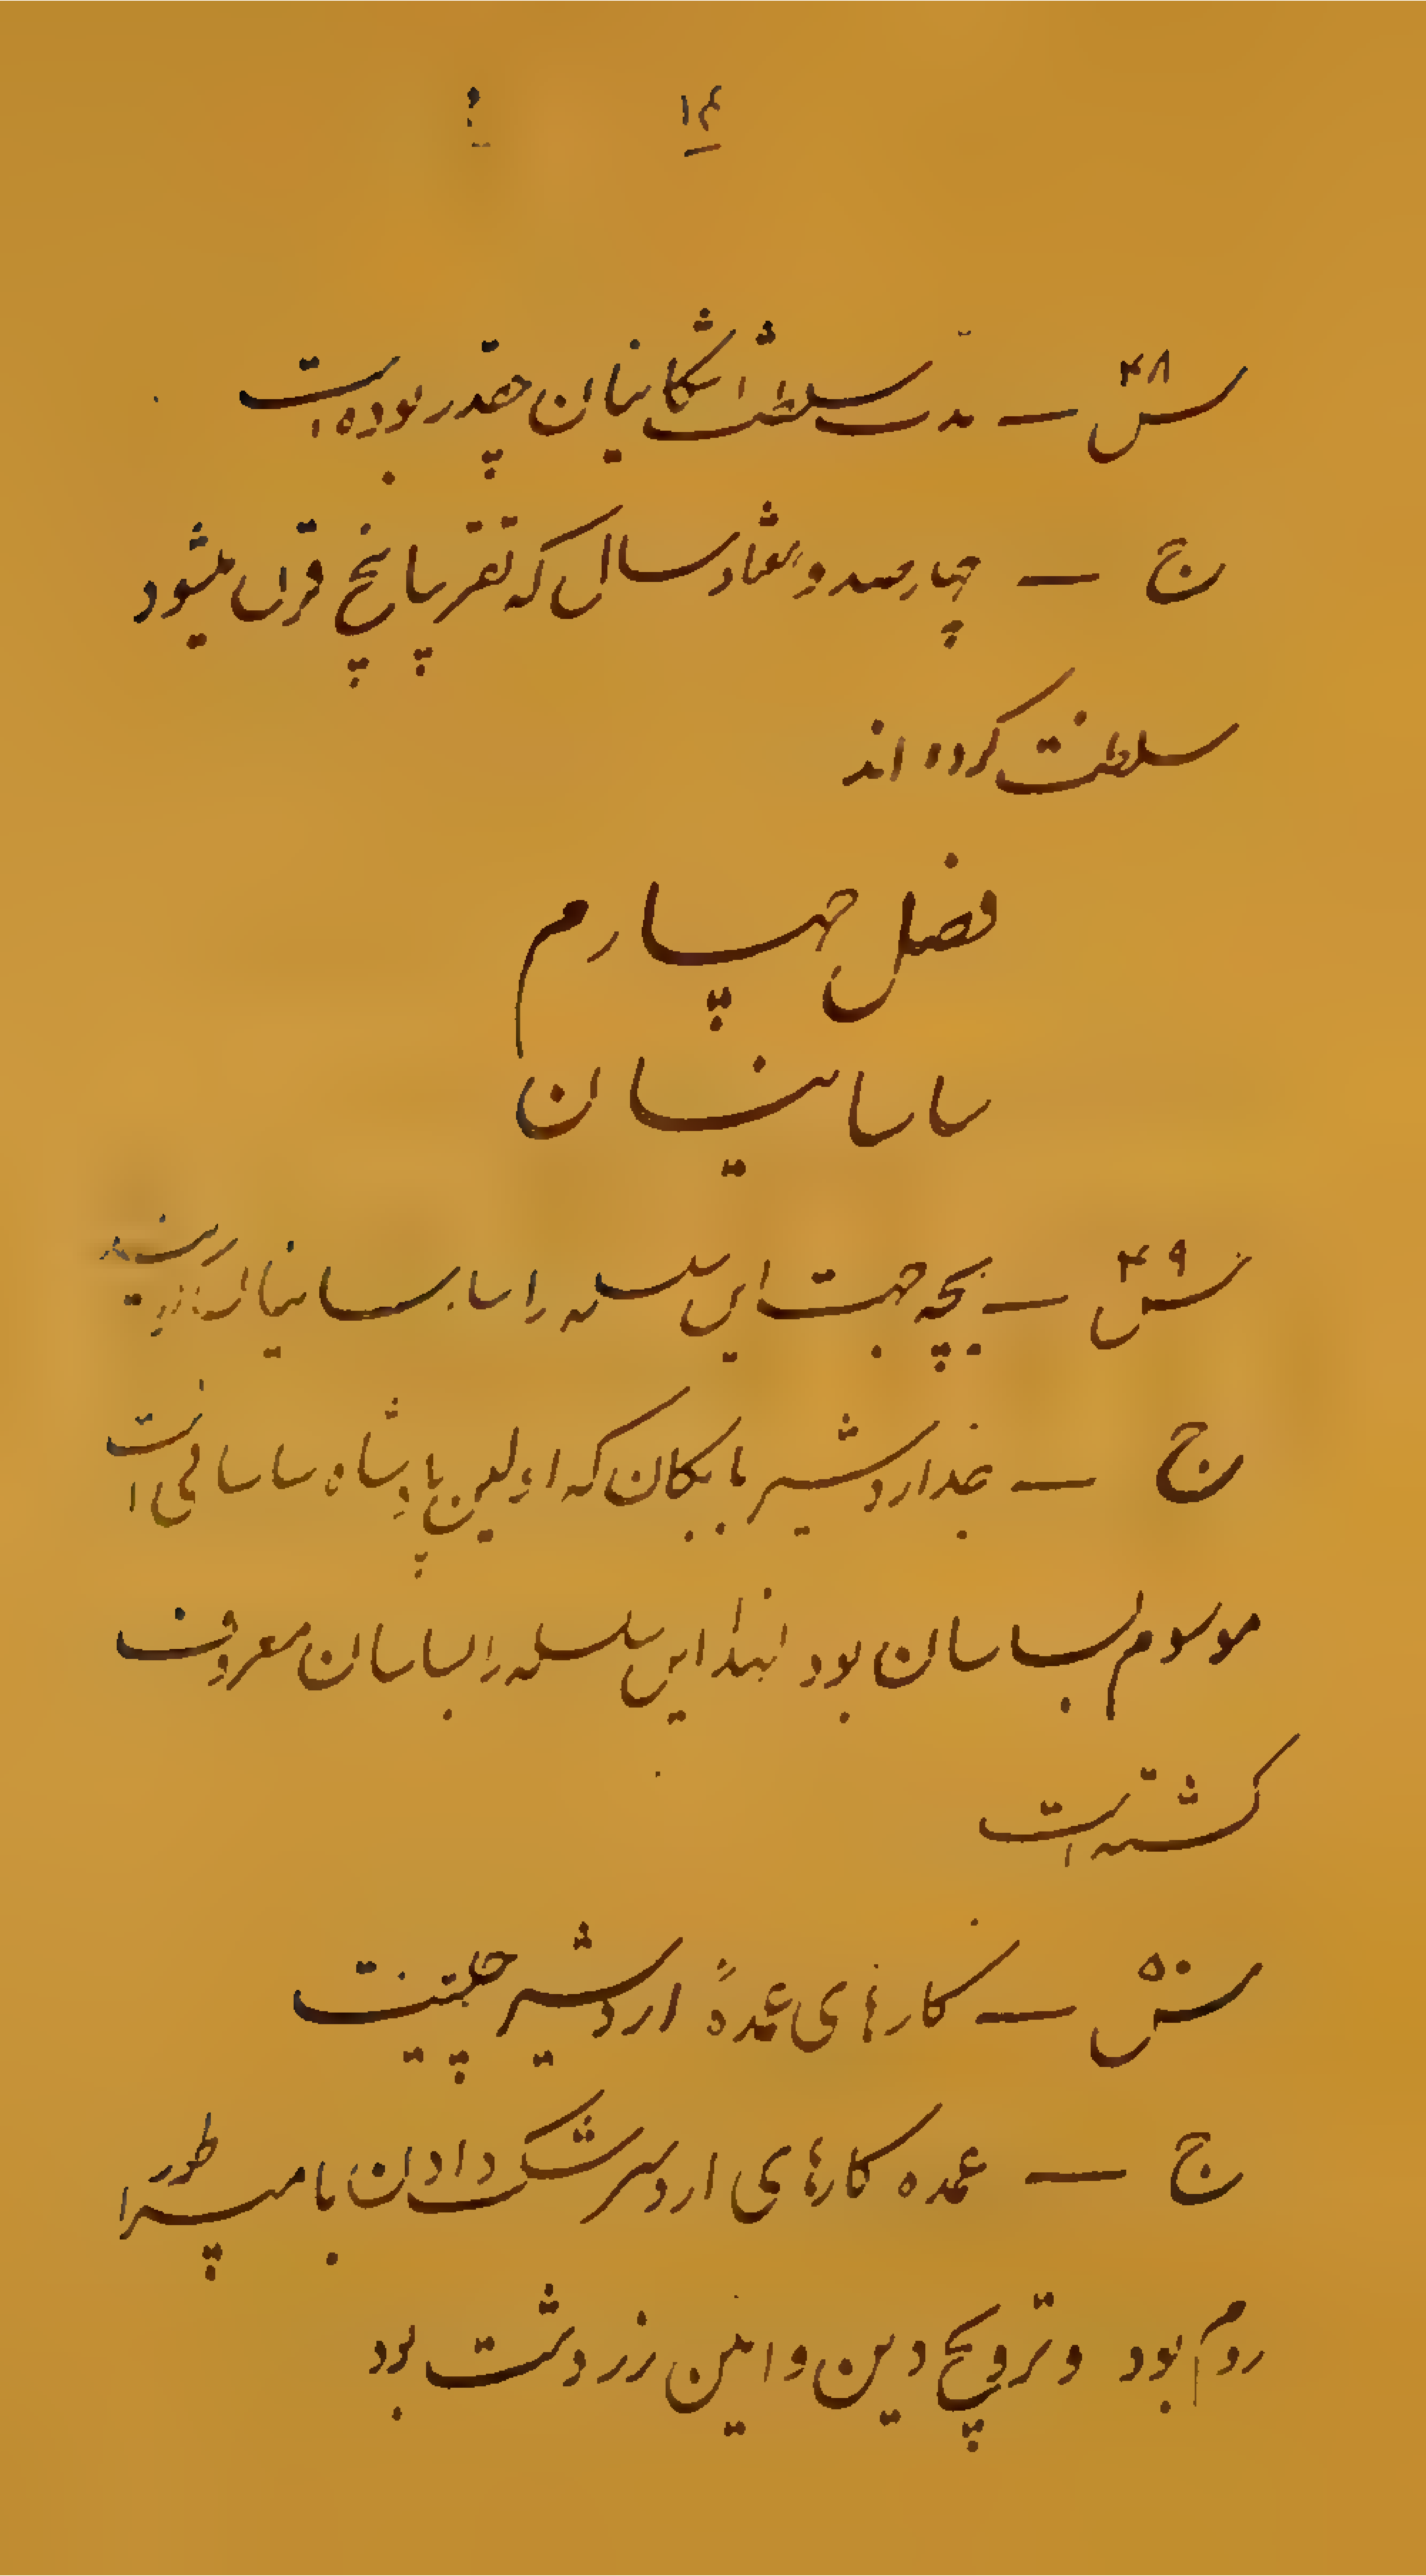 ۱۴
س۴۸ — مدت سلطنت اشکانیان چقدر بوده است
ج — چهارصد و هفتاد سال که تقریبا پنج قرن میشود
سلطنت کرده اند
فصل چهارم
ساسانیان
س۴۹ — بچه جهت این سلسله را
ج — جد اردشیر بابکان که اولین پادشاه ساسانی است
موسوم بساسان بود لهذا این سلسله را بساسان معروف
گشته است
س۵۰ — کارهای عمدهٔ اردشیر چیست
ج — عمده کارهای اردشیر شکست دادن بامپراطور
روم بود و ترویج دین و ائین زردشت بود